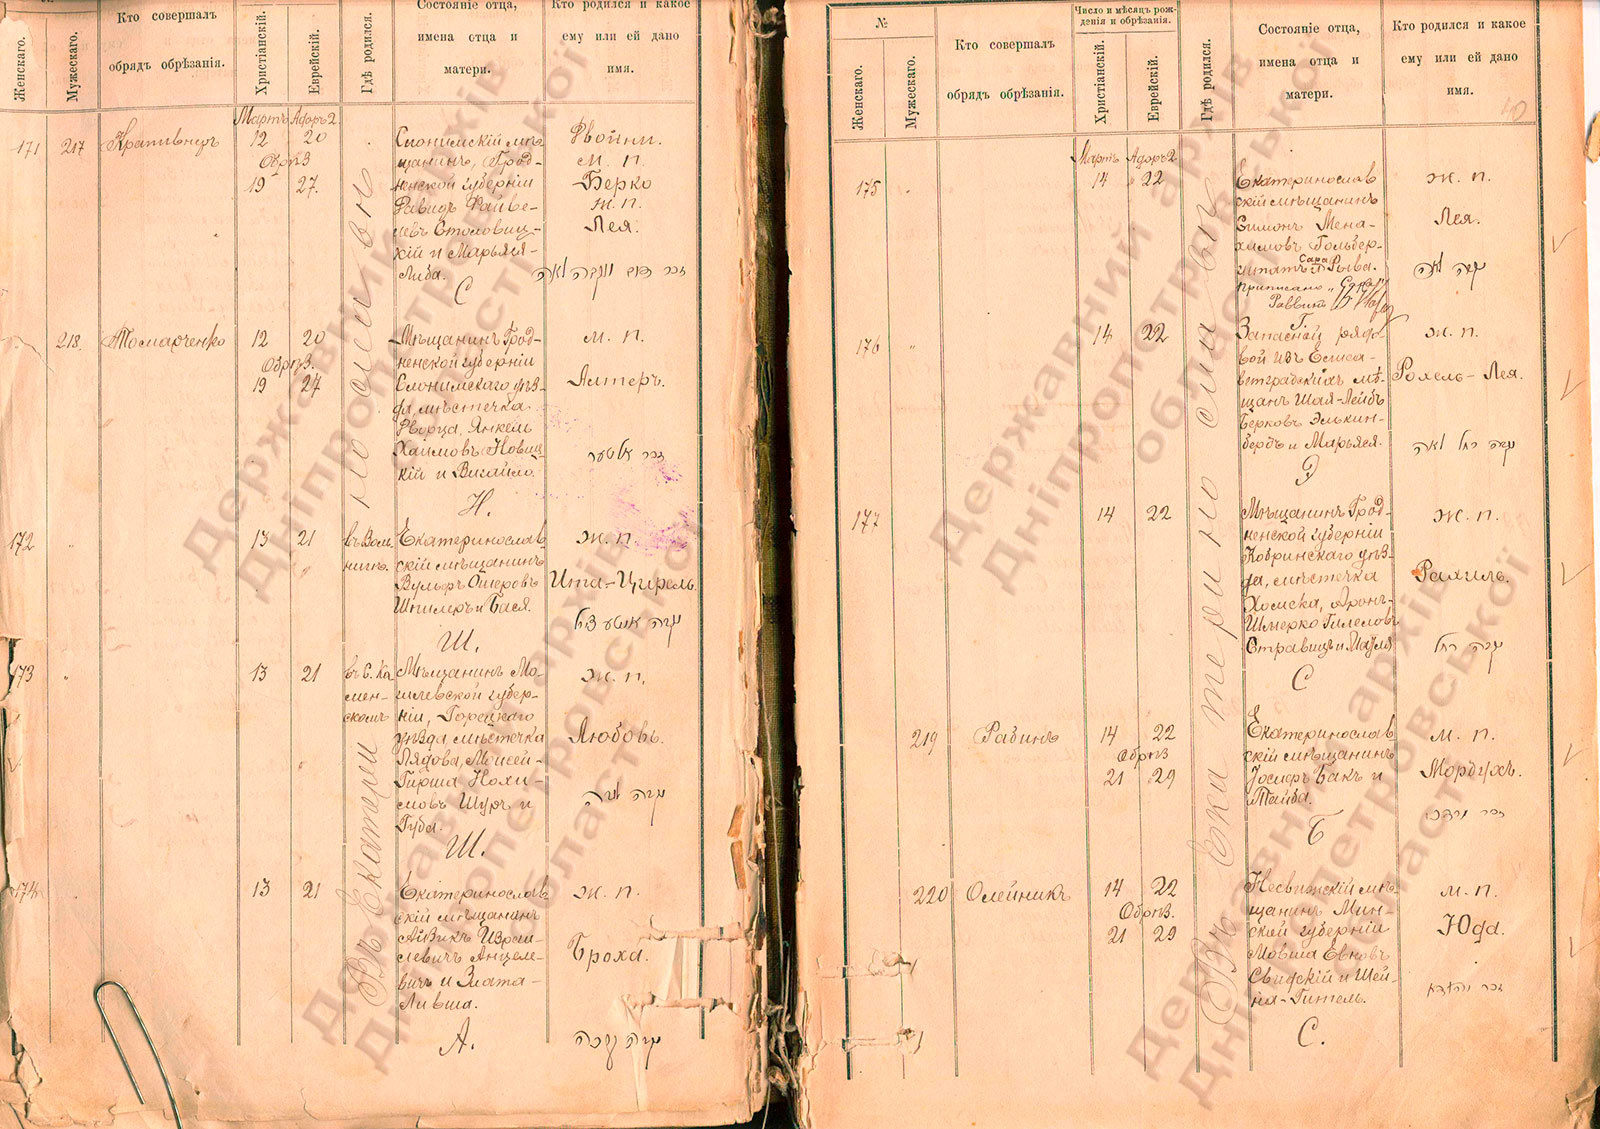 Женскаго.
Мужескаго.
Кто совершалъ
обрядъ обрѣзанія.
Христіанскій.
Еврейскій.
Гдѣ родился.
Состояніе отца,
имена отца и
матери.
Кто родился и какое
ему или ей дано
имя.
Мартъ Адоръ 2.
171 217 12 20
Обрѣз
19 27.
Слонимскій мѣ-
щанинъ, Грод-
ненской губерніи
и Марьяся-
Либа.
С
Двойни.
м. п.
Берко
ж. п.
Лея.
218 Томарченко 12 20
Обрѣз.
19 27
Мѣщанинъ Грод-
ненской губерніи
Слонимскаго уѣз-
да, мѣстечка
Дворца, Янкель
Хаимовъ Новиц-
кій и
Н.
м. п.
Алтеръ.
זכר אלטער
172 13 21
Екатеринослав-
скій мѣщанинъ
Вульфъ Ошеровъ
Шпилеръ и Бася.
Ш.
ж. п.
Ита-Цирель
173 13 21
въ С. Ка
мен-
скомъ
Мѣщанинъ Мо-
гилевской губер-
ніи, Горецкаго
уѣзда мѣстечка
Лядова, Мовсей-
Гирша Нохи-
мовъ Шуръ и
Гуда.
Ш.
ж. п.
Любовь.
174 13 21
Екатеринослав
скій мѣщанинъ
Айзикъ Изра-
илевичъ Анцеле-
вичъ и Злата-
Ливша.
А.
ж. п.
Броха.
Въ Екатеринославѣ
№
Женскаго.
Мужескаго.
Кто совершалъ
обрядъ обрѣзанія.
Число и мѣсяцъ рож-
денія и обрѣзанія.
Христіанскій.
Еврейскій.
Гдѣ родился.
Состояніе отца,
имена отца и
матери.
Кто родился и какое
ему или ей дано
имя.
Мартъ Адоръ 2
175 14 22
Екатеринослав
скій мѣщанинъ
Симонъ Мена-
химовъ Гольбер-
штатъ Сара Рыва.
приписано „Сара"
Раввинъ
ж. п.
Лея.
נקבה לאה
176 14 22
Запасной рядо-
вой изъ Елиса-
ветградскихъ мѣ-
щанъ Шая-Лейбъ
Берковъ Элькин-
бердъ и Марьяся.
Э
ж. п.
Рохель-Лея.
נקבה רחל לאה
177 14 22
Мѣщанинъ Грод-
ненской губерніи
Кобринскаго уѣз-
да, мѣстечка
Хомска, Аронъ-
Шмерко Гилелевъ
С
ж. п.
Рахиль.
נקבה רחל
219 Рабинъ 14 22
Обрѣз
21 29
Екатеринослав
скій мѣщанинъ
Іосифъ Бакъ и
Тайба.
Б
м. п.
Мордухъ.
זכר מרדכי
220 Олейникъ 14 22
Обрѣз.
21 29
Несвижскій мѣ-
щанинъ Мин-
ской губерніи
Мовша Евновъ
Свидскій и Шей-
на-Гитель.
С.
м. п.
Юда.
זכר יהודא
Въ Екатеринославѣ
Державний архів
Дніпропетровської
області